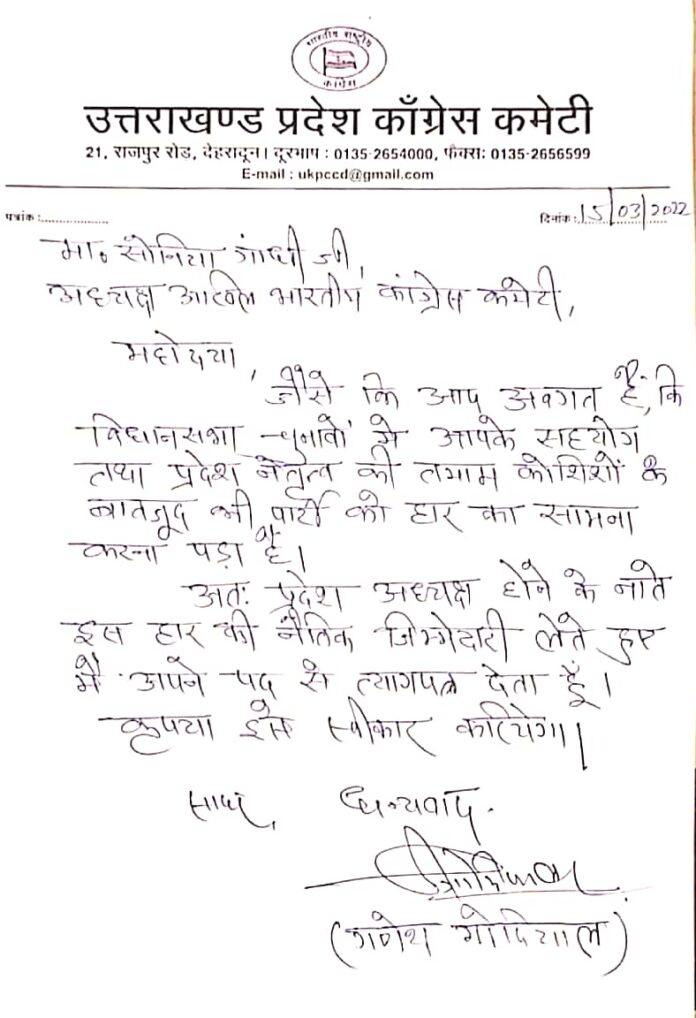 भारतीय राष्ट्रीय
काँग्रेस
उत्तराखण्ड प्रदेश काँग्रेस कमेटी
21, राजपुर रोड़, देहरादून। दूरभाष : 0135-2654000, फैक्सः 0135-2656599
E-mail : ukpccd@gmail.com
पत्रांक:.................... दिनांक:.15/03/2022
मा॰ सोनिया गांधी जी,
अध्यक्ष अखिल भारतीय कांग्रेस कमेटी,
महोदया,
जैसे कि आप अवगत हैं, कि
विधानसभा चुनावों में आपके सहयोग
तथा प्रदेश नेतृत्व की तमाम कोशिशों के
बावजूद भी पार्टी को हार का सामना
करना पड़ा है।
अतः प्रदेश अध्यक्ष होने के नाते
इस हार की नैतिक जिम्मेदारी लेते हुए
मैं अपने पद से त्यागपत्र देता हूँ।
कृपया इसे स्वीकार करियेगा।
सादर, धन्यवाद.
(गणेश गोदियाल)